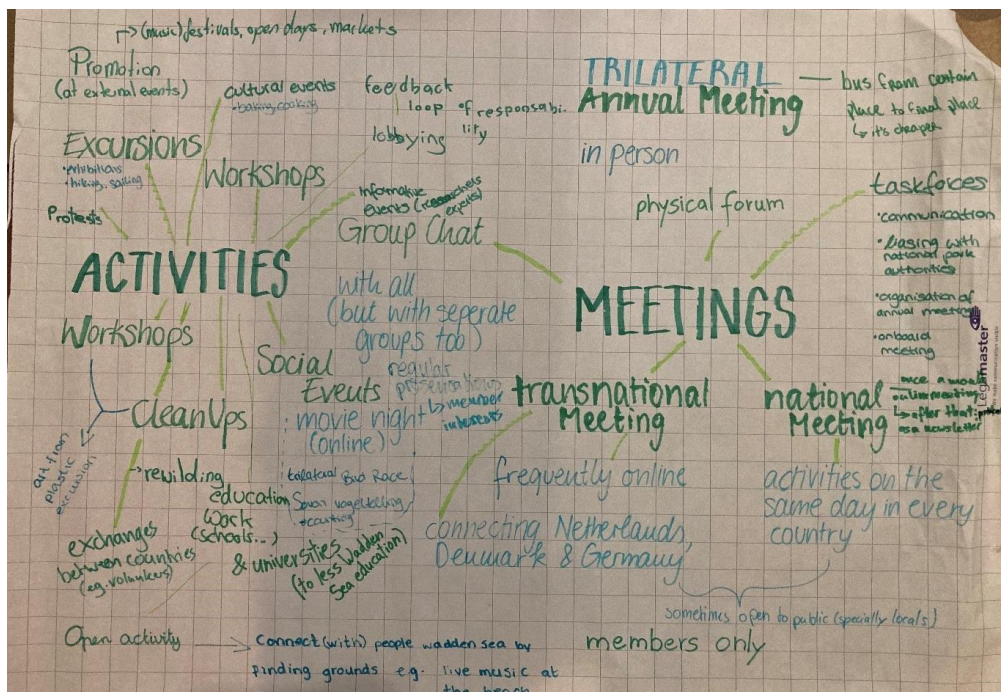 (music)festivals, open days, markets
Promotion
(at external events)
cultural events
•baking, cooking
feedback
loop of responsabi-
lity
lobbying
Excursions
•exhibitions
•hiking, sailing
Workshops
Protests
Informative
events (researchers
experts)
Group Chat
with all
(but with seperate
groups too)
ACTIVITIES
Workshops
CleanUps
art from
plastic
excursion
→rewilding
education
work
(schools...)
& universities
(to less Wadden
Sea education)
exchanges
between countries
(eg. volunteers)
Social
Events
movie night
(online)
trilateral Bus Race
regular
presentations
↳ member
interests
Open activity
→ Connect (with) people wadden sea by
finding grounds e.g. live music at
the beach
TRILATERAL
Annual Meeting
in person
— bus from certain
place to final place
↳ it's cheaper
physical forum
taskforces
•communication
•liasing with
national park
authorities
•organisation of
annual meeting
•onboard
meeting
MEETINGS
transnational
Meeting
frequently online
connecting Netherlands,
Denmark & Germany
national
Meeting
once a month
online meeting
↳ after that:
as a newsletter
activities on the
same day in every
country
sometimes open to public (specially locals)
members only
Legamaster